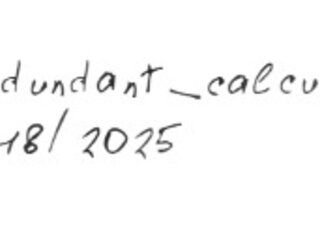 dundant_calcu
18/2025